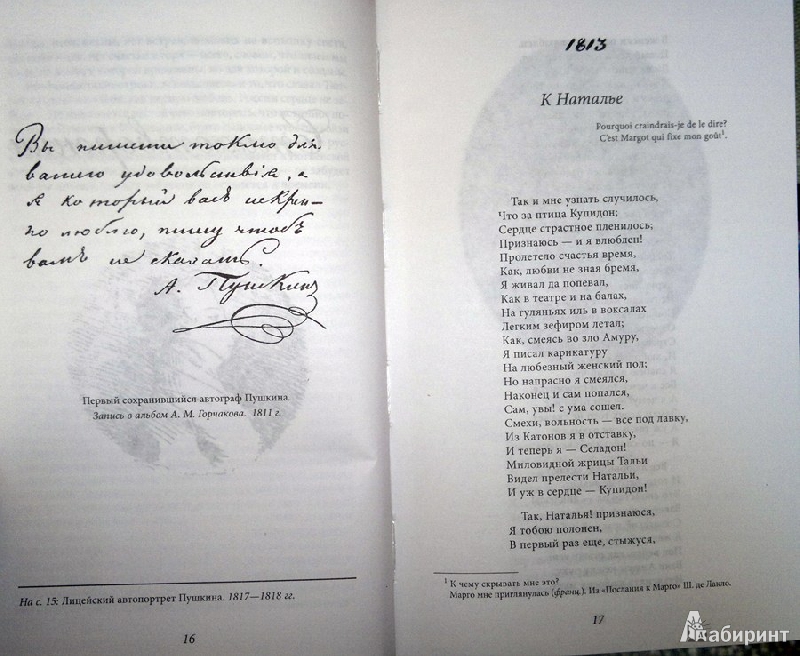 Вы пишете токмо для
вашего удовольствія, а
я который васъ искрен-
но люблю, пишу чтобъ
вамъ не сказать.
А. Пушкин
Первый сохранившийся автограф Пушкина.
Запись в альбом А. М. Горчакова. 1811 г.
На с. 15: Лицейский автопортрет Пушкина. 1817—1818 гг.
16
1813
К Наталье
Pourquoi craindrais-je de le dire?
C'est Margot qui fixe mon goût¹.
Так и мне узнать случилось,
Что за птица Купидон;
Сердце страстное пленилось;
Признаюсь — и я влюблен!
Пролетело счастья время,
Как, любви не зная бремя,
Я живал да попевал,
Как в театре и на балах,
На гуляньях иль в воксалах
Легким зефиром летал;
Как, смеясь во зло Амуру,
Я писал карикатуру
На любезный женский пол;
Но напрасно я смеялся,
Наконец и сам попался,
Сам, увы! с ума сошел.
Смехи, вольность — все под лавку,
Из Катонов я в отставку,
И теперь я — Селадон!
Миловидной жрицы Тальи
Видел прелести Натальи,
И уж в сердце — Купидон!
Так, Наталья! признаюся,
Я тобою полонен,
В первый раз еще, стыжуся,
¹ К чему скрывать мне это?
Марго мне приглянулась (франц.). Из «Послания к Марго» Ш. де Лакло.
17
Лабиринт